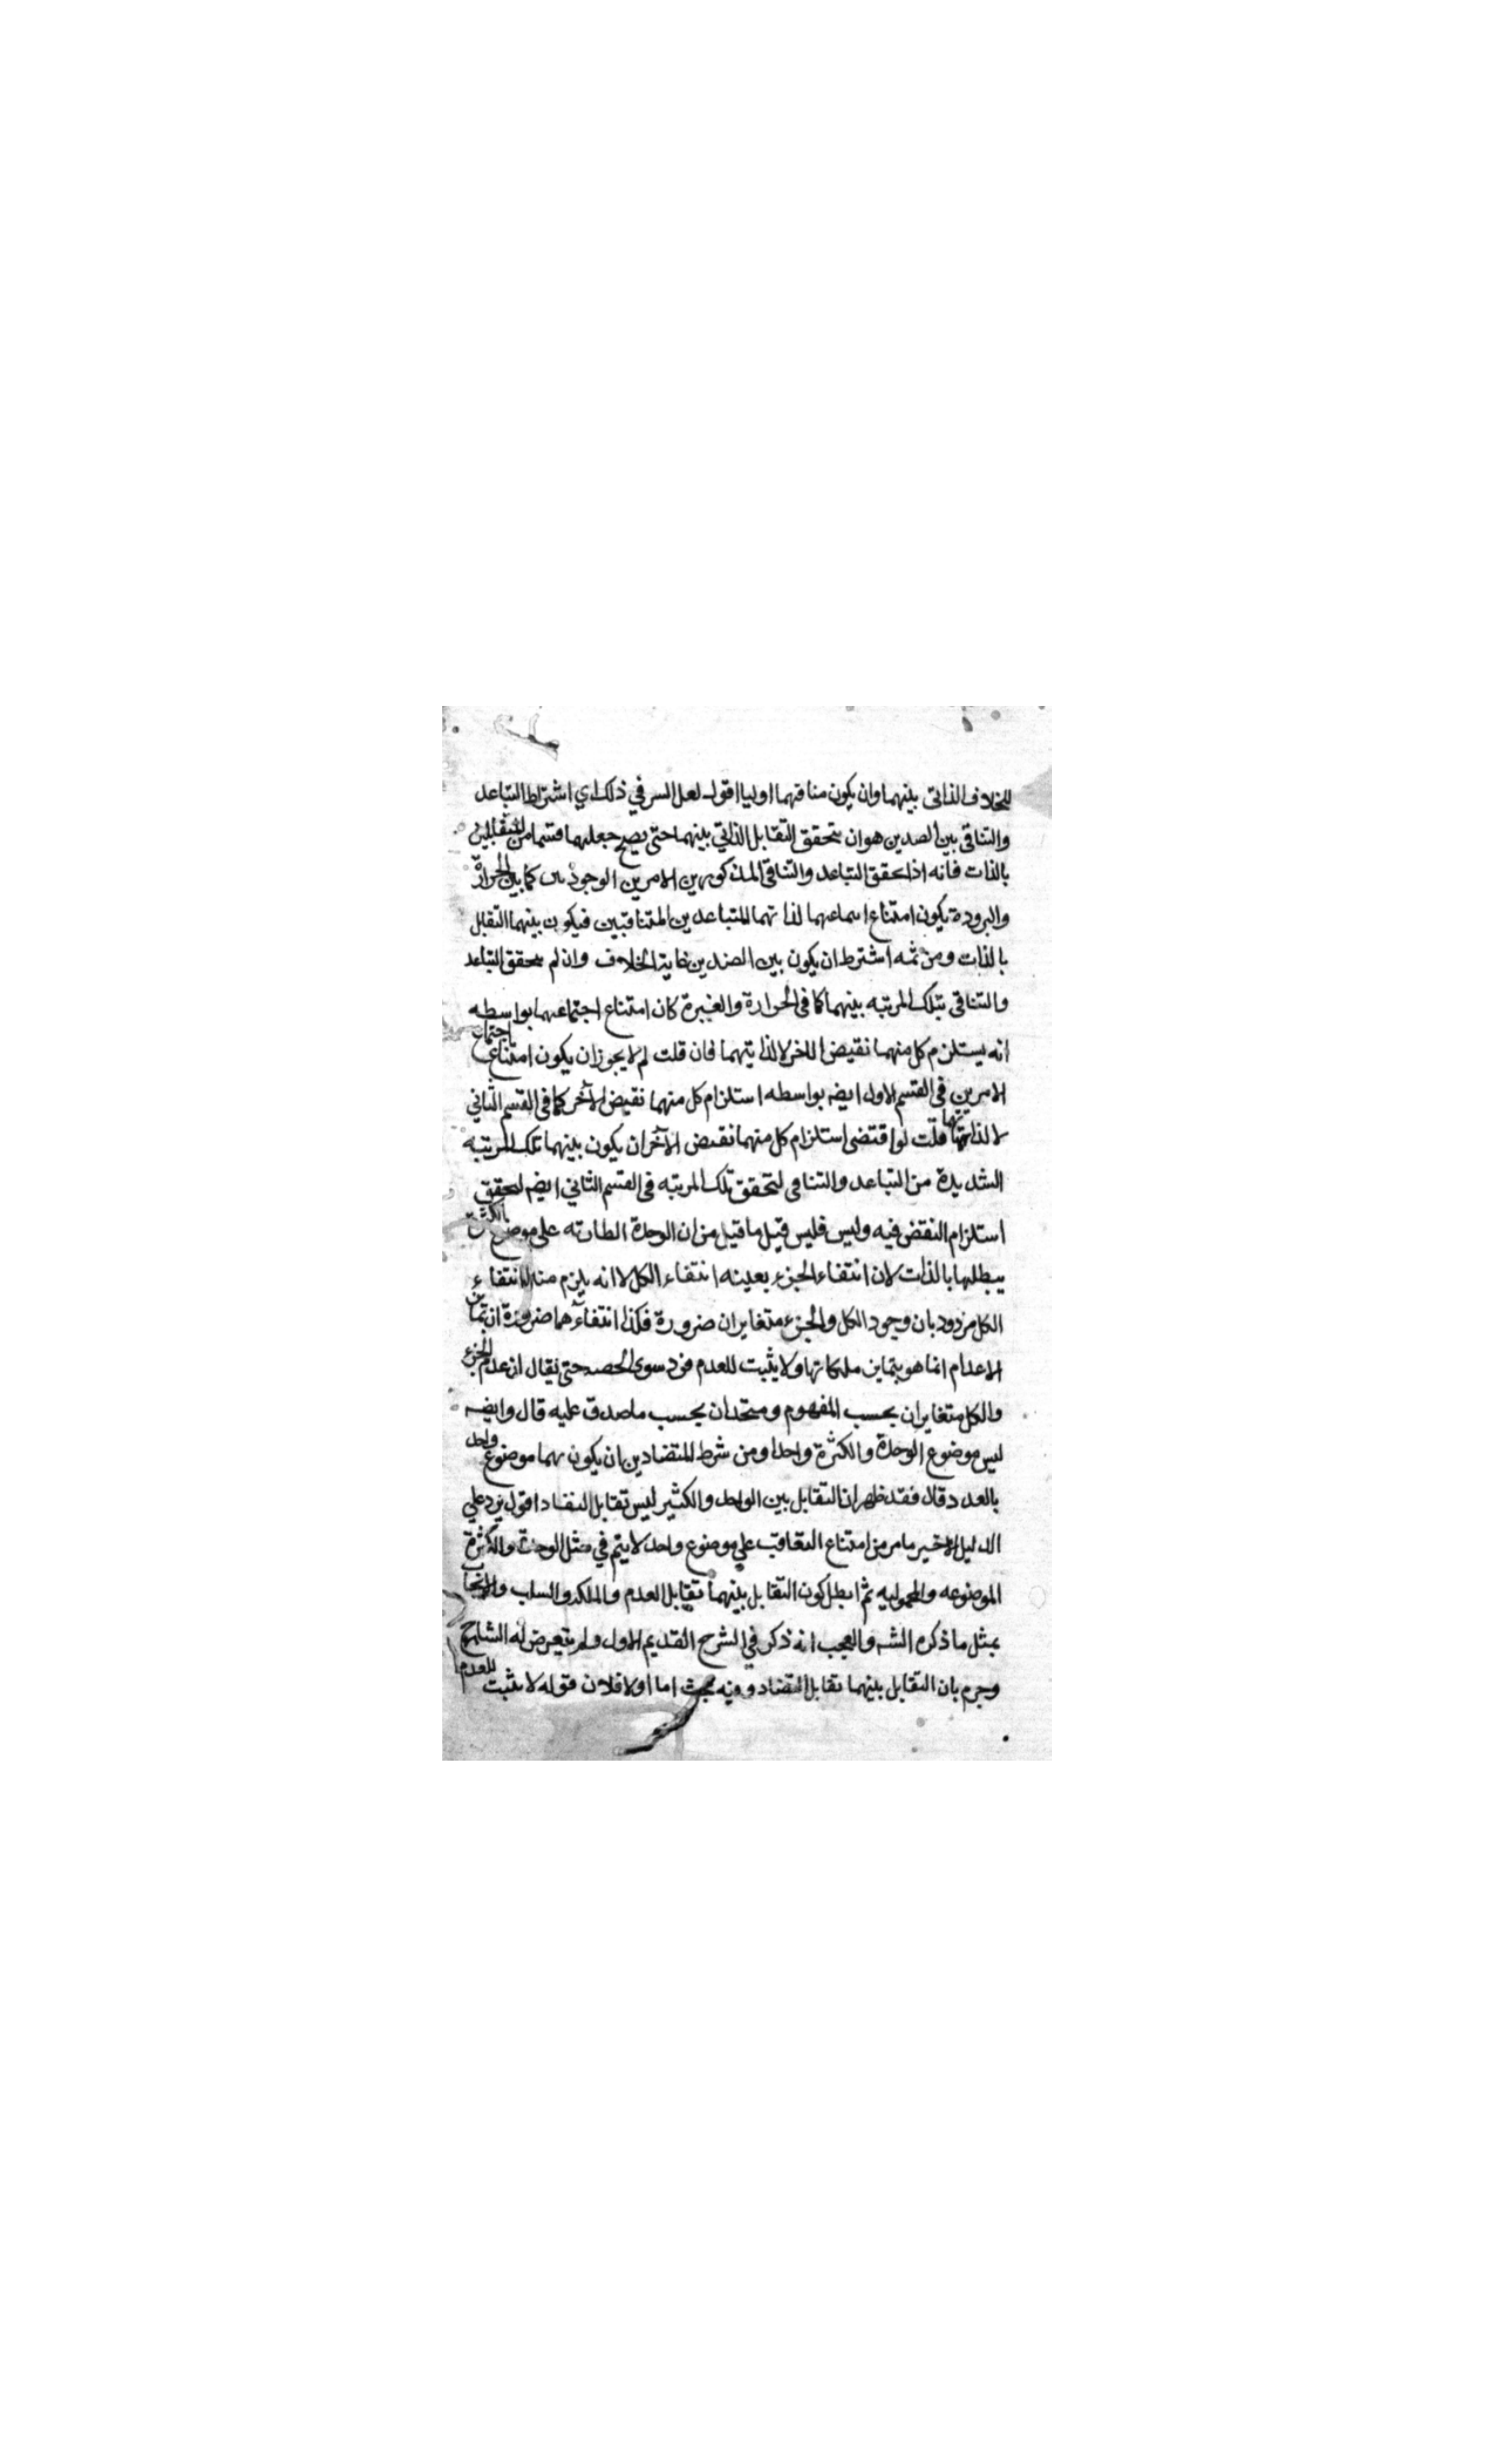 للخلاف الذاتى بينهما وان يكون منافتهما اوليا اقول لعل السر في ذلك اي اشتراط التباعد
والتنافى بين الضدين هو ان يتحقق التقابل الذاتي بينهما حتى يصح جعلهما قسما من المتقابلين
بالذات فانه اذا تحقق التباعد والتنافى المذكورين بين الامرين الوجوديين كما بين الحرارة
والبرودة يكون امتناع اجتماعهما لذاتهما المتباعدين المتنافيين فيكون بينهما التقابل
بالذات ومن ثمه اشترط ان يكون بين الضدين غاية الخلاف وان لم يتحقق التباعد
والتنافى بتلك المرتبه بينهما كما فى الحرارة والغبرة كان امتناع اجتماعهما بواسطه
انه يستلزم كل منهما نقيض الاخر لا لذاتيهما فان قلت لم لا يجوز ان يكون امتناع اجتماع
الامرين فى القسم الاول ايضه بواسطه استلزام كل منهما نقيض الآخر كما فى القسم الثاني
لا لذاتيهما قلت لو اقتضى استلزام كل منهما نقيض الآخر ان يكون بينهما تلك المرتبه
الشديدة من التباعد والتنافى لتحقق تلك المرتبه فى القسم الثاني ايضه لتحقق
استلزام النقض فيه وليس فليس قيل ما قيل من ان الوحدة الطارئه على موضوع الكثرة
يبطلها بالذات لان انتفاء الجزء بعينه انتفاء الكل لا انه يلزم منه انتفاء
الكل مردود بان وجود الكل والجزء متغايران ضرورة فكذا انتفاءهما ضرورة ان تمايز
الاعدام انما هو بتمايز ملكاتها ولا يثبت للعدم فرد سوى الحصه حتى يقال ان عدم الجزء
والكل متغايران بحسب المفهوم ومتحدان بحسب ما صدق عليه قال وايضه
ليس موضوع الوحدة والكثرة واحدا ومن شرط المتضادين ان يكون لهما موضوع واحد
بالعدد قال فقد ظهر ان التقابل بين الواحد والكثير ليس تقابل التضاد اقول يرد علي
الدليل الاخير ما مر من امتناع التعاقب علي موضوع واحد لا يتم في مثل الوحدة والكثرة
الموضوعه والمحموليه ثم ابطل كون التقابل بينهما تقابل العدم والملكه والسلب والايجاب
بمثل ما ذكره الشه والعجب انه ذكر في الشرح القديم الاول ولم يتعرض له الشارح
وجزم بان التقابل بينهما تقابل التضاد وفيه بحث اما اولا فلان قوله لا يثبت للعدم